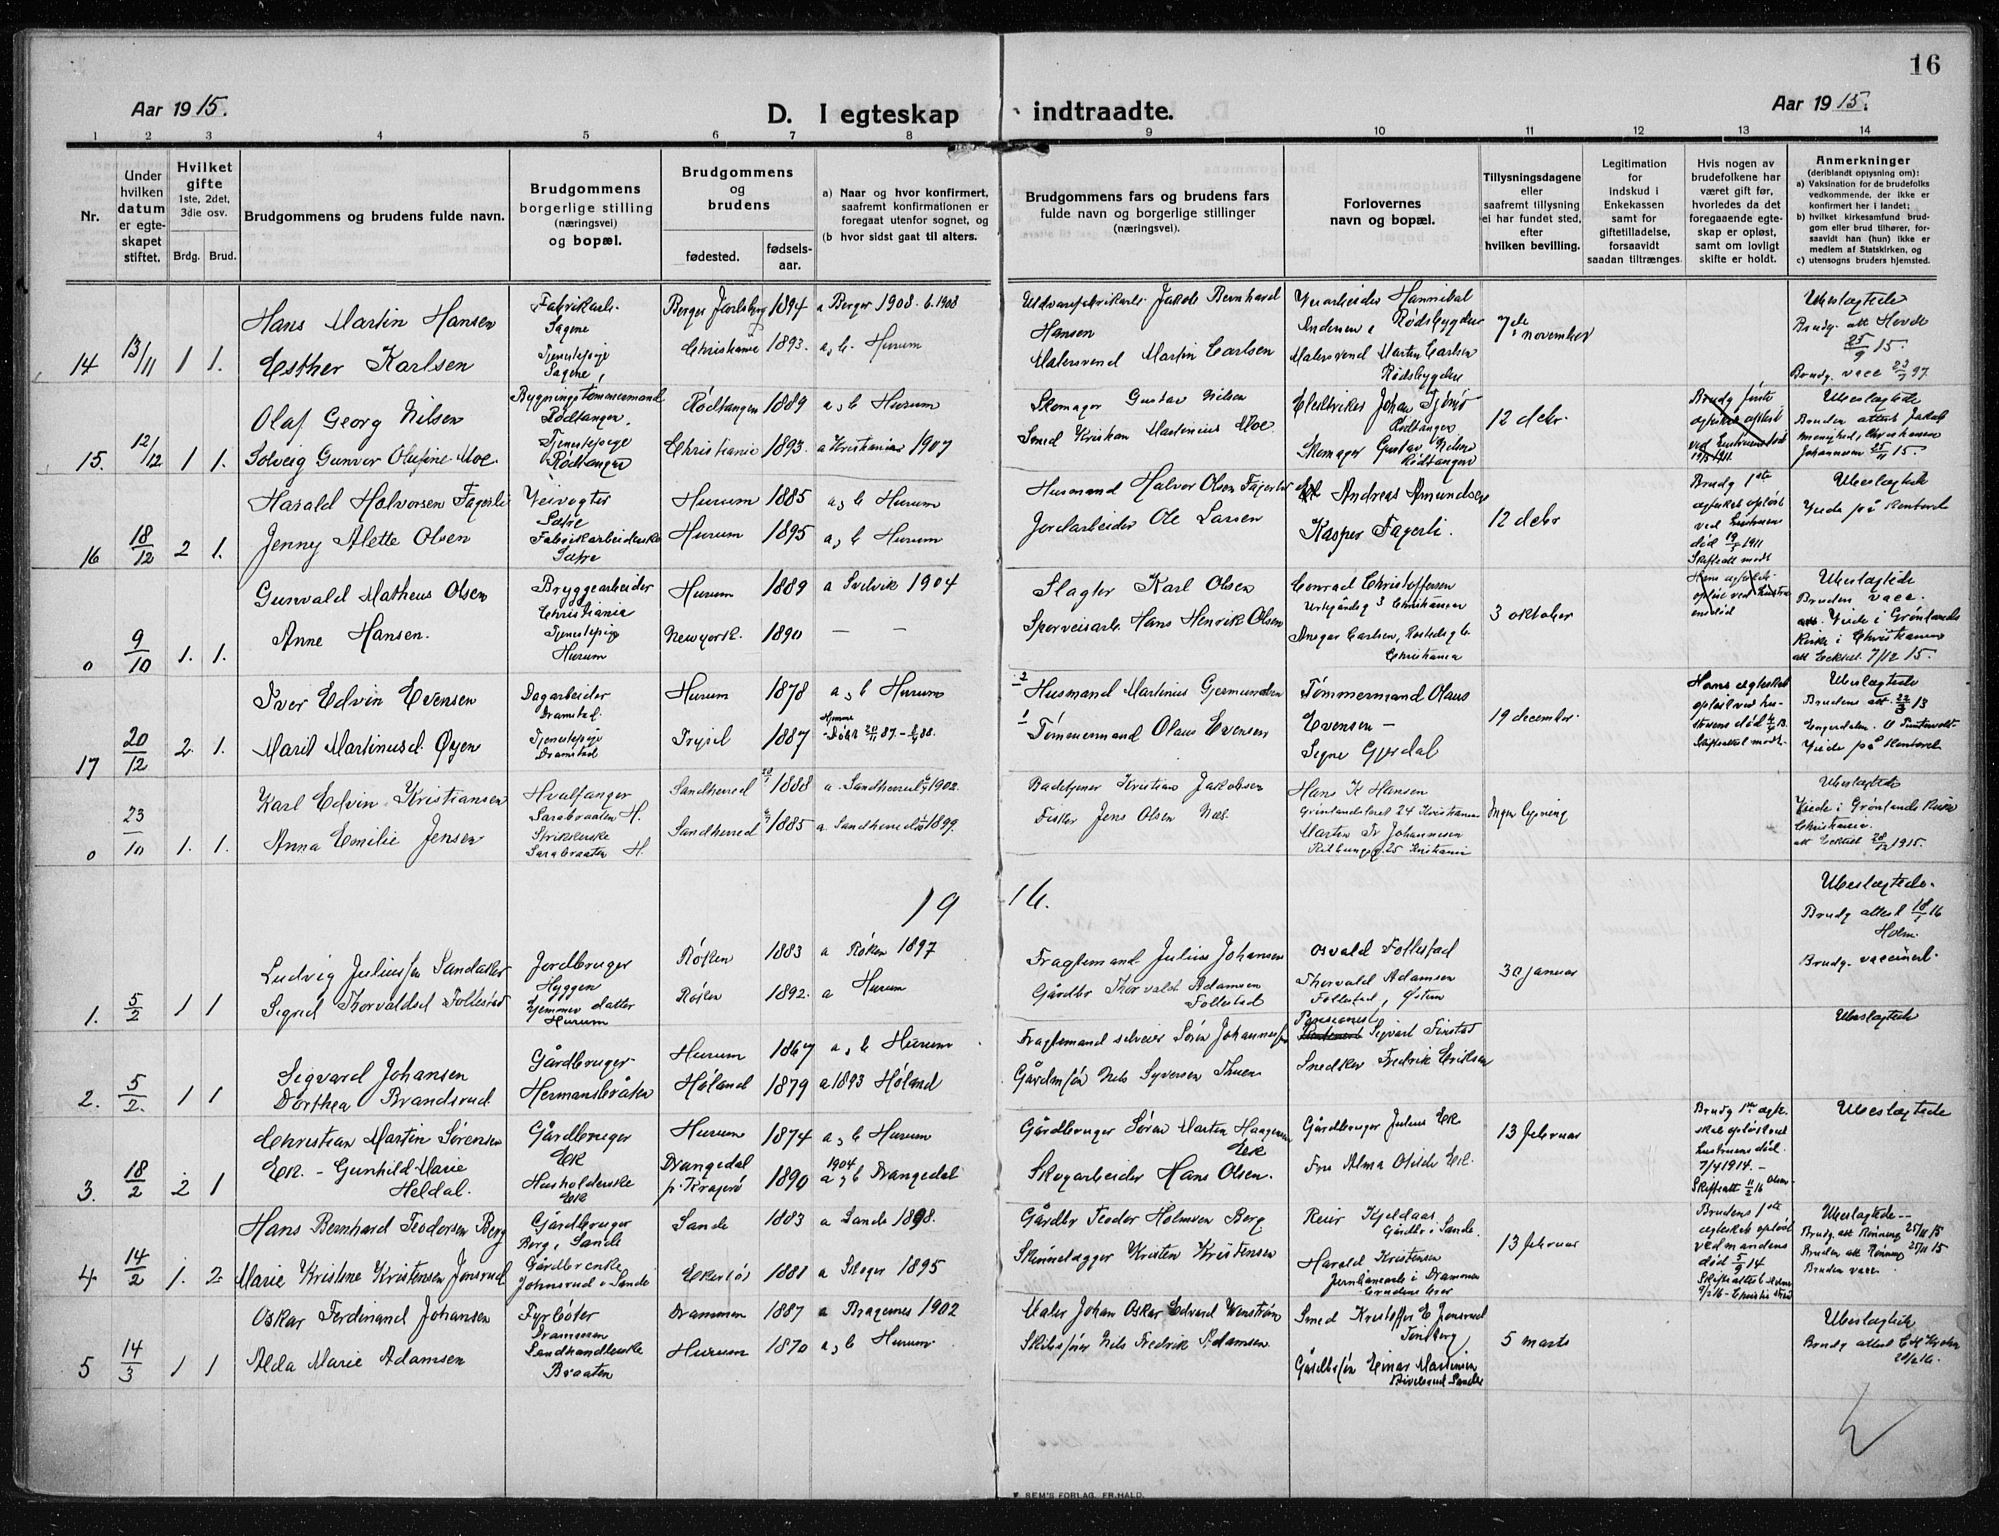 16
Aar 1915.
D. I egteskap indtraadte.
Aar 1915.
1 2 3 4 5 6 7 8 9 10 11 12 13 14
Nr.
Under
hvilken
datum
er egte-
skapet
stiftet.
Hvilket
gifte
1ste, 2det,
3die osv.
Brdg. Brud.
Brudgommens og brudens fulde navn.
Brudgommens
borgerlige stilling
(næringsvei)
og bopæl.
Brudgommens
og
brudens
fødested.
fødsels-
aar.
a) Naar og hvor konfirmert,
saafremt konfirmationen er
foregaat utenfor sognet, og
(b hvor sidst gaat til alters.
Brudgommens fars og brudens fars
fulde navn og borgerlige stillinger
(næringsvei).
Forlovernes
navn og bopæl.
Tillysningsdagene
eller
saafremt tillysning
ei har fundet sted,
efter
hvilken bevilling.
Legitimation
for
indskud i
Enkekassen
samt for
giftetilladelse,
forsaavidt
saadan tiltrænges.
Hvis nogen av
brudefolkene har
været gift før,
hvorledes da det
foregaaende egte-
skap er opløst,
samt om lovligt
skifte er holdt.
Anmerkninger
(deriblandt oplysning om):
a) Vaksination for de brudefolks
vedkommende, der ikke er
konfirmert her i landet;
b) hvilket kirkesamfund brud-
gom eller brud tilhører, for-
saavidt han (hun) ikke er
medlem af Statskirken, og
c) utensogns bruders hjemsted.
14 13/11 1 1.
Hans Martin Hansen
Esther Karlsen
Fabrikarb.
Sagene
Tjenestepige
Sagene
Berger Jarlsberg 1894 a Berger 1908. b. 1908
Christiania 1893. a, b. Hurum
Uldvarefabrikarb. Jakob Bernhard
Hansen
Malersvend Martin Carlsen
Veiarbeider Hannibal
Andersen, Rødsbygden
Malersvend Martin Carlsen
Rødsbygden
7de november
Ubeslægtede
Brudg. att Hovde
25/9 15.
Brudg. vacc 23/7 97.
15. 12/12 1 1.
Olaf Georg Nilsen
Solveig Gunvor Olufine Moe.
Bygningstømmermand
Rødtangen.
Tjenestepige
Rødtangen
Rødtangen 1889 a, b Hurum
Christiania 1893. a Kristiania 1907
Skomager Gustav Nilsen
Smed Kristian Martinius Moe
Johan Tjømø
Rødtangen
Skomager Gustav Nilsen
Rødtangen
12 debr.
Brudg første
Ubeslægtede
Bruden attest Jakob
menighed, Christiania
Johannesen 25/11 15.
16 18/12 2 1.
Harald Halvorsen Fagerli
Jenny Alette Olsen
Veivogter
Sætre
Fabrikarbeiderske
Sætre
Hurum 1885 a, b Hurum
Hurum 1895 a, b Hurum
Husmand Halvor Olsen Fagerli
Jordarbeider Ole Larsen
Andreas Amundsen
Kasper Fagerli.
12 debr
Brudg 1ste
egteskab opløst
ved hustruens
død 19/5 1911
Skifteatt modt
Ubeslægtede
Viede på Kontoret
0 9/10 1. 1.
Gunvald Matheus Olsen
Anne Hansen.
Bryggearbeider
Christiania
Tjenestepige
Hurum
Hurum 1889 a Svelvik 1904
New york. 1890 – –
Slagter Karl Olsen
Sporveisarb. Hans Henrik Olsen
Conrad Christoffersen
Urtegårdsg 3 Christiania
Ansgar Carlsen, Rostedsg 6
Christiania
3 oktober
Ubeslægtede
Bruden vacc.
Viede i Grønlands
Kirke i Christiania
att Ecktel. 7/12 15.
17 20/12 2. 1.
Iver Edvin Evensen
Marit Martinusd Øyen
Dagarbeider
Dramstad.
Tjenestepige
Dramstad
Hurum 1878 a, b Hurum
Trysil 1887
2 Husmand Martinius Gjermundsen
1 Tømmermand Olaus Evensen
Tømmermand Olaus
Evensen –
Signe Gjerdal
19 december.
Hans egteskab
opløst ved hu-
struens død 4/4 13.
Skifteattest modt.
Ubeslægtede
Brudens att. 22/3 13
Engerdalen.
Viede på Kontoret
0 23/10 1. 1.
Karl Edvin Kristiansen
Anna Emilie Jensen
Hvalfanger
Sarabraaten H.
Strikkerske
Sarabraaten H
Sandherred 1888 a. Sandherred 1902.
Sandherred 1885 a Sandherred 1899.
Badetjener Kristian Jakobsen
Fisker Jens Olsen Næs.
Hans K Hansen
Grønlandsleret 24 Kristiania
Martin Fr Johannesen
25 Kristiania
Ingen lysning
Ubeslægtede
Viede i Grønlands Kirke
Christiania.
att Ecktel 28/12 1915.
19 16.
1. 5/2 1 1
Ludvig Julius søn Sandaker
Sigrid Thorvaldsd Follestad
Jordbruger
Hyggen
Hjemmev datter
Hurum
Røken 1883 a Røken 1897
Røken 1892. a Hurum
Fragtemand Julius Johansen
Gårdbr Thorvald Adamsen
Follestad
Osvald Follestad
Thorvald Adamsen
Follestad, Østern
30 januar
Ubeslægtede.
Brudg attest 18/1 16
Holm.
Brudg. vaccinert.
2. 5/2. 1 1
Sigvard Johansen
Dorthea Brandsrud
Gårdbruger
Hermansbråten
Hurum 1867 a, b Hurum
Høland 1879 a 1893 Høland
Fragtemand selveier Søren Johannessøn
Gårdmsøn Nils Syversen Thuen
Pensionert Sigvart Finstad
Snedker Fredrik Eriksen
Ubeslægtede
3. 18/2 2 1
Christian Martin Sørensen
Ek. – Gunhild Marie
Heldal.
Gårdbruger
Ek
Husholderske
Ek
Hurum 1874 a, b Hurum
Drangedal
p. Kragerø 1890 1904 a, b Drangedal
Gårdbruger Søren Martin Haagensen
Ek
Skogarbeider Hans Olsen.
Gårdbruger Julius Ek
Fru Alma Otilde Ek.
13 februar
Brudg 1ste egte-
skab opløst ved
hustruens død.
7/4 1914. –
Skifteatt 11/2 16 Olsen
Ubeslægtede
4. 14/2 1. 2
Hans Bernhard Teodorsen Berg
Marie Kristine Kristensen Jonsrud
Gårdbruger
Berg i Sande
Gårdbrenke
Johnsrud i Sande
Sande 1883 a Sande 1898.
1881 a Skoger 1895
Gårdbr Teodor Holmsen Berg
Skinnelægger Kristen Kristensen
Reier Kjeldaas
Gårdbr i Sande.
Harald Kristensen
Jernbanearb i Drammen
13 februar
Brudens 1ste
egteskab opløst
ved mandens
død 5/9 14
Ubeslægtede –
Brudg. att Rønning 25/11 15
Bruden att Rønning 25/11 15
Bruden vacc.
5 14/3 1 1
Oskar Ferdinand Johansen
Alda Marie Adamsen
Fyrbøter
Drammen
Landhandlerske
Braaten
Drammen 1887 a Bragernes 1902
Hurum 1870 a, b Hurum.
Maler Johan Oskar Edvard Wenstrøm
Skibsfører Nils Fredrik Adamsen
Smed Kristoffer E Jonsrud
Tønsberg
Gårdbrsøn Einar Martinsen
Sande
5 marts
Ubeslægtede
Brudg attest
28/2 16.
F. SEM'S FORLAG, FR.HALD.